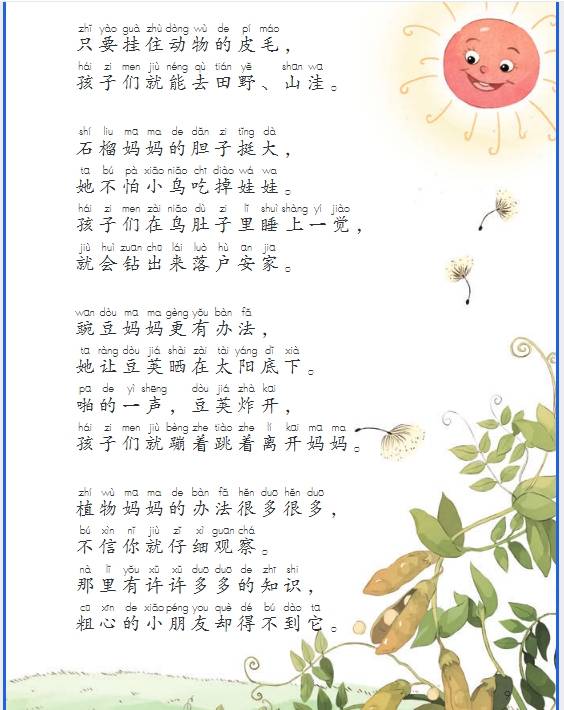 zhī yào guà zhù dòng wù de pí máo
只要挂住动物的皮毛，
hái zi men jiù néng qù tián yě shān wā
孩子们就能去田野、山洼。
shí liu mā ma de dǎn zi tǐng dà
石榴妈妈的胆子挺大，
tā bú pà xiǎo niǎo chī diào wá wa
她不怕小鸟吃掉娃娃。
hái zi men zài niǎo dù zi lǐ shuì shàng yí jiào
孩子们在鸟肚子里睡上一觉，
jiù huì zuān chū lái luò hù ān jiā
就会钻出来落户安家。
wān dòu mā ma gèng yǒu bàn fǎ
豌豆妈妈更有办法，
tā ràng dòu jiá shài zài tài yáng dǐ xià
她让豆荚晒在太阳底下。
pā de yì shēng dòu jiá zhà kāi
啪的一声，豆荚炸开，
hái zi men jiù bèng zhe tiào zhe lí kāi mā ma
孩子们就蹦着跳着离开妈妈。
zhí wù mā ma de bàn fǎ hěn duō hěn duō
植物妈妈的办法很多很多，
bú xìn nǐ jiù zǐ xì guān chá
不信你就仔细观察。
nà lǐ yǒu xǔ xǔ duō duō de zhī shi
那里有许许多多的知识，
cū xīn de xiǎo péng you què dé bú dào tā
粗心的小朋友却得不到它。
9